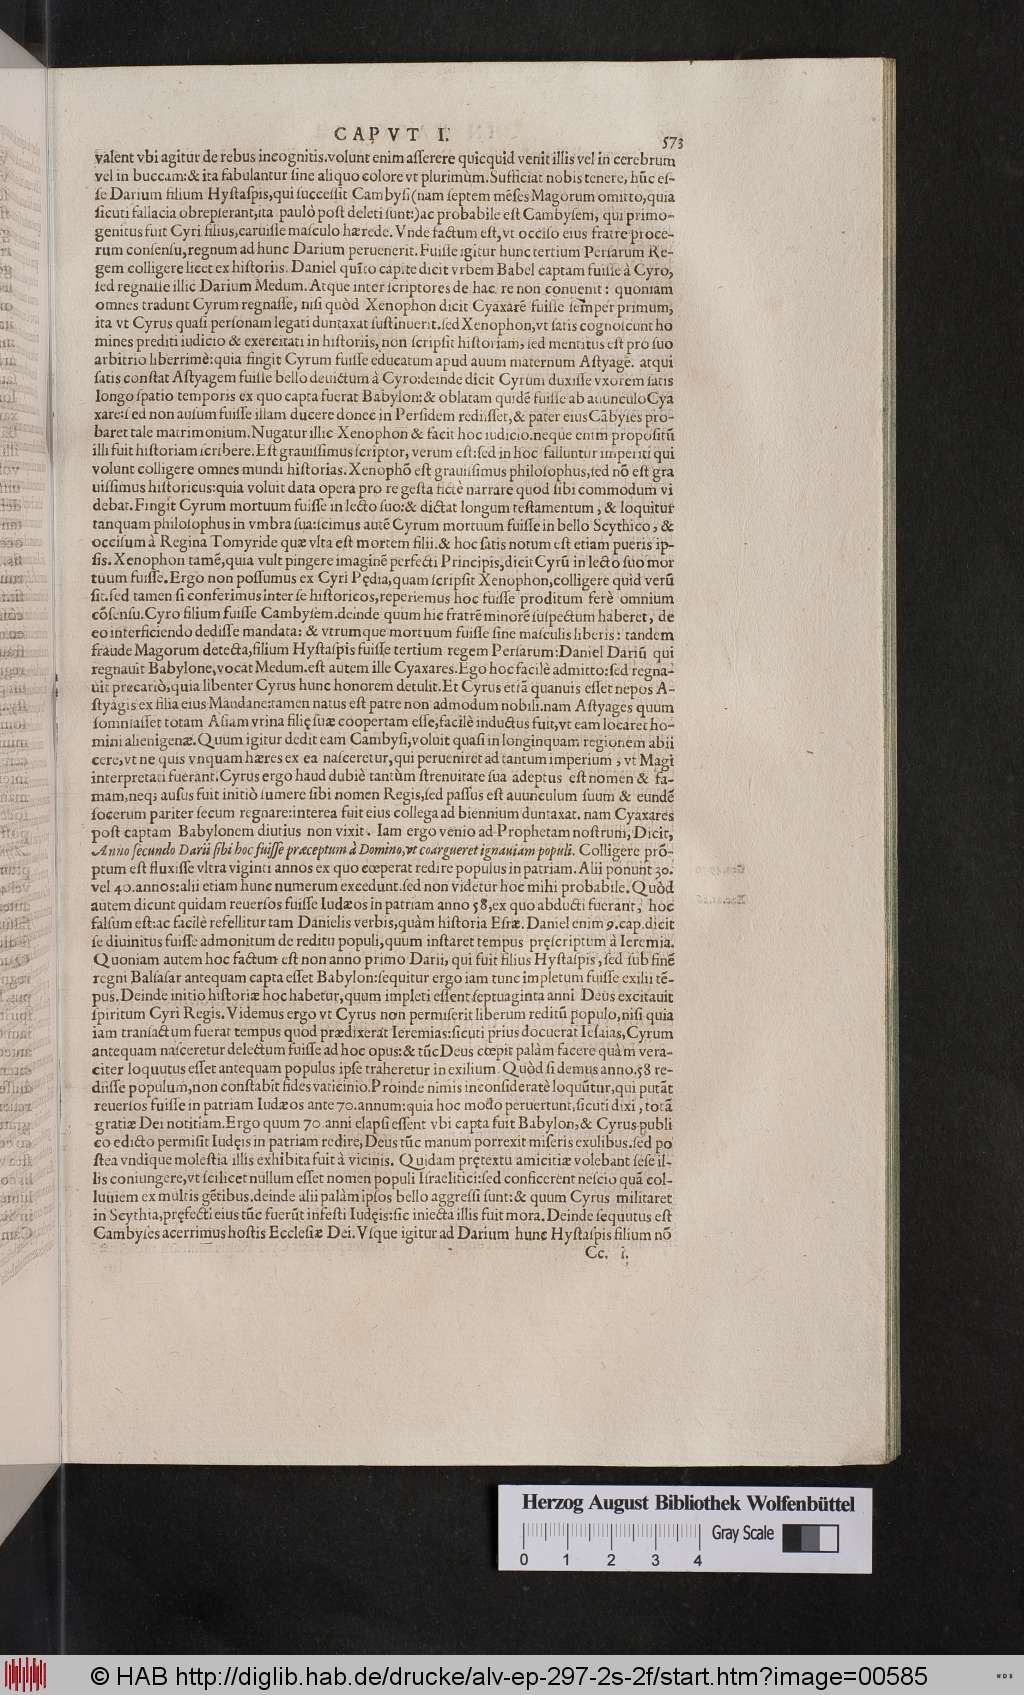 CAPVT I.
573
valent vbi agitur de rebus incognitis. volunt enim aſſerere quicquid venit illis vel in cerebrum
vel in buccam: & ita fabulantur ſine aliquo colore vt plurimùm. Sufficiat nobis tenere, hũc eſ-
ſe Darium filium Hyſtaſpis, qui ſucceſſit Cambyſi (nam ſeptem mẽſes Magorum omitto, quia
ſicuti fallacia obrepſerant, ita paulò poſt deleti ſunt:) ac probabile eſt Cambyſem, qui primo-
genitus fuit Cyri filius, caruiſſe maſculo hærede. Vnde factum eſt, vt occiſo eius fratre proce-
rum conſenſu, regnum ad hunc Darium peruenerit. Fuiſſe igitur hunc tertium Perſarum Re-
gem colligere licet ex hiſtoriis. Daniel quĩto capite dicit vrbem Babel captam fuiſſe à Cyro,
ſed regnaſſe illic Darium Medum. Atque inter ſcriptores de hac re non conuenit: quoniam
omnes tradunt Cyrum regnaſſe, niſi quòd Xenophon dicit Cyaxarẽ fuiſſe ſemper primum,
ita vt Cyrus quaſi perſonam legati duntaxat ſuſtinuerit. ſed Xenophon, vt ſatis cognoſcunt ho
mines prediti iudicio & exercitati in hiſtoriis, non ſcripſit hiſtoriam, ſed mentitus eſt pro ſuo
arbitrio liberrimè: quia fingit Cyrum fuiſſe educatum apud auum maternum Aſtyagẽ. atqui
ſatis conſtat Aſtyagem fuiſſe bello deuictum à Cyro: deinde dicit Cyrum duxiſſe vxorem ſatis
longo ſpatio temporis ex quo capta fuerat Babylon: & oblatam quidẽ fuiſſe ab auunculo Cya
xare: ſed non auſum fuiſſe illam ducere donec in Perſidem rediiſſet, & pater eius Cãbyſes pro-
baret tale matrimonium. Nugatur illic Xenophon & facit hoc iudicio. neque enim propoſitũ
illi fuit hiſtoriam ſcribere. Eſt grauiſſimus ſcriptor, verum eſt: ſed in hoc falluntur imperiti qui
volunt colligere omnes mundi hiſtorias. Xenophõ eſt grauiſſimus philoſophus, ſed nõ eſt gra
uiſſimus hiſtoricus: quia voluit data opera pro re geſta fictè narrare quod ſibi commodum vi
debat. Fingit Cyrum mortuum fuiſſe in lecto ſuo: & dictat longum teſtamentum, & loquitur
tanquam philoſophus in vmbra ſua: ſcimus autẽ Cyrum mortuum fuiſſe in bello Scythico, &
occiſum à Regina Tomyride quæ vlta eſt mortem filii. & hoc ſatis notum eſt etiam pueris ip-
ſis. Xenophon tamẽ, quia vult pingere imaginẽ perfecti Principis, dicit Cyrũ in lecto ſuo mor
tuum fuiſſe. Ergo non poſſumus ex Cyri Pędia, quam ſcripſit Xenophon, colligere quid verũ
ſit. ſed tamen ſi conferimus inter ſe hiſtoricos, reperiemus hoc fuiſſe proditum ferè omnium
cõſenſu. Cyro filium fuiſſe Cambyſem. deinde quum hic fratrẽ minorẽ ſuſpectum haberet, de
eo interficiendo dediſſe mandata: & vtrumque mortuum fuiſſe ſine maſculis liberis: tandem
fraude Magorum detecta, filium Hyſtaſpis fuiſſe tertium regem Perſarum: Daniel Dariũ qui
regnauit Babylone, vocat Medum. eſt autem ille Cyaxares. Ego hoc facilè admitto: ſed regna-
uit precariò, quia libenter Cyrus hunc honorem detulit. Et Cyrus etiã quanuis eſſet nepos A-
ſtyagis ex filia eius Mandane: tamen natus eſt patre non admodum nobili. nam Aſtyages quum
ſomniaſſet totam Aſiam vrina filię ſuæ coopertam eſſe, facilè inductus fuit, vt eam locaret ho-
mini alienigenæ. Quum igitur dedit eam Cambyſi, voluit quaſi in longinquam regionem abii
cere, vt ne quis vnquam hæres ex ea naſceretur, qui perueniret ad tantum imperium, vt Magi
interpretati fuerant. Cyrus ergo haud dubiè tantùm ſtrenuitate ſua adeptus eſt nomen & fa-
mam, neq; auſus fuit initiò ſumere ſibi nomen Regis, ſed paſſus eſt auunculum ſuum & eundẽ
ſocerum pariter ſecum regnare: interea fuit eius collega ad biennium duntaxat. nam Cyaxares
poſt captam Babylonem diutius non vixit. Iam ergo venio ad Prophetam noſtrum; Dicit,
Anno ſecundo Darii ſibi hoc fuiſſe præceptum à Domino, vt coargueret ignauiam populi. Colligere prõ-
ptum eſt fluxiſſe vltra viginti annos ex quo cœperat redire populus in patriam. Alii ponunt 30.
vel 40. annos: alii etiam hunc numerum excedunt. ſed non videtur hoc mihi probabile. Quòd
autem dicunt quidam reuerſos fuiſſe Iudæos in patriam anno 58, ex quo abducti fuerant, hoc
falſum eſt: ac facilè refellitur tam Danielis verbis, quàm hiſtoria Eſræ. Daniel enim 9. cap. dicit
ſe diuinitus fuiſſe admonitum de reditu populi, quum inſtaret tempus pręſcriptum à Ieremia.
Quoniam autem hoc factum eſt non anno primo Darii, qui fuit filius Hyſtaſpis, ſed ſub finẽ
regni Balſaſar antequam capta eſſet Babylon: ſequitur ergo iam tunc impletum fuiſſe exilii tẽ-
pus. Deinde initio hiſtoriæ hoc habetur, quum impleti eſſent ſeptuaginta anni Deus excitauit
ſpiritum Cyri Regis. Videmus ergo vt Cyrus non permiſerit liberum reditũ populo, niſi quia
iam tranſactum fuerat tempus quod prædixerat Ieremias: ſicuti prius docuerat Ieſaias, Cyrum
antequam naſceretur delectum fuiſſe ad hoc opus: & tũc Deus cœpit palàm facere quàm vera-
citer loquutus eſſet antequam populus ipſe traheretur in exilium. Quòd ſi demus anno. 58 re-
diiſſe populum, non conſtabit fides vaticinio. Proinde nimis inconſideratè loquũtur, qui putãt
reuerſos fuiſſe in patriam Iudæos ante 70. annum: quia hoc modo peruertunt, ſicuti dixi, totã
gratiæ Dei notitiam. Ergo quum 70 anni elapſi eſſent vbi capta fuit Babylon, & Cyrus publi
co edicto permiſit Iudęis in patriam redire, Deus tũc manum porrexit miſeris exulibus. ſed po
ſtea vndique moleſtia illis exhibita fuit à vicinis. Quidam prętextu amicitiæ volebant ſeſe il-
lis coniungere, vt ſcilicet nullum eſſet nomen populi Iſraelitici: ſed conficerent neſcio quã col-
luuiem ex multis gẽtibus. deinde alii palàm ipſos bello aggreſſi ſunt: & quum Cyrus militaret
in Scythia, pręfecti eius tũc fuerũt infeſti Iudęis: ſic iniecta illis fuit mora. Deinde ſequutus eſt
Cambyſes acerrimus hoſtis Eccleſiæ Dei. Vſque igitur ad Darium hunc Hyſtaſpis filium nõ
Cc. i.
Herzog August Bibliothek Wolfenbüttel
Gray Scale
0 1 2 3 4
© HAB http://diglib.hab.de/drucke/alv-ep-297-2s-2f/start.htm?image=00585
WDB